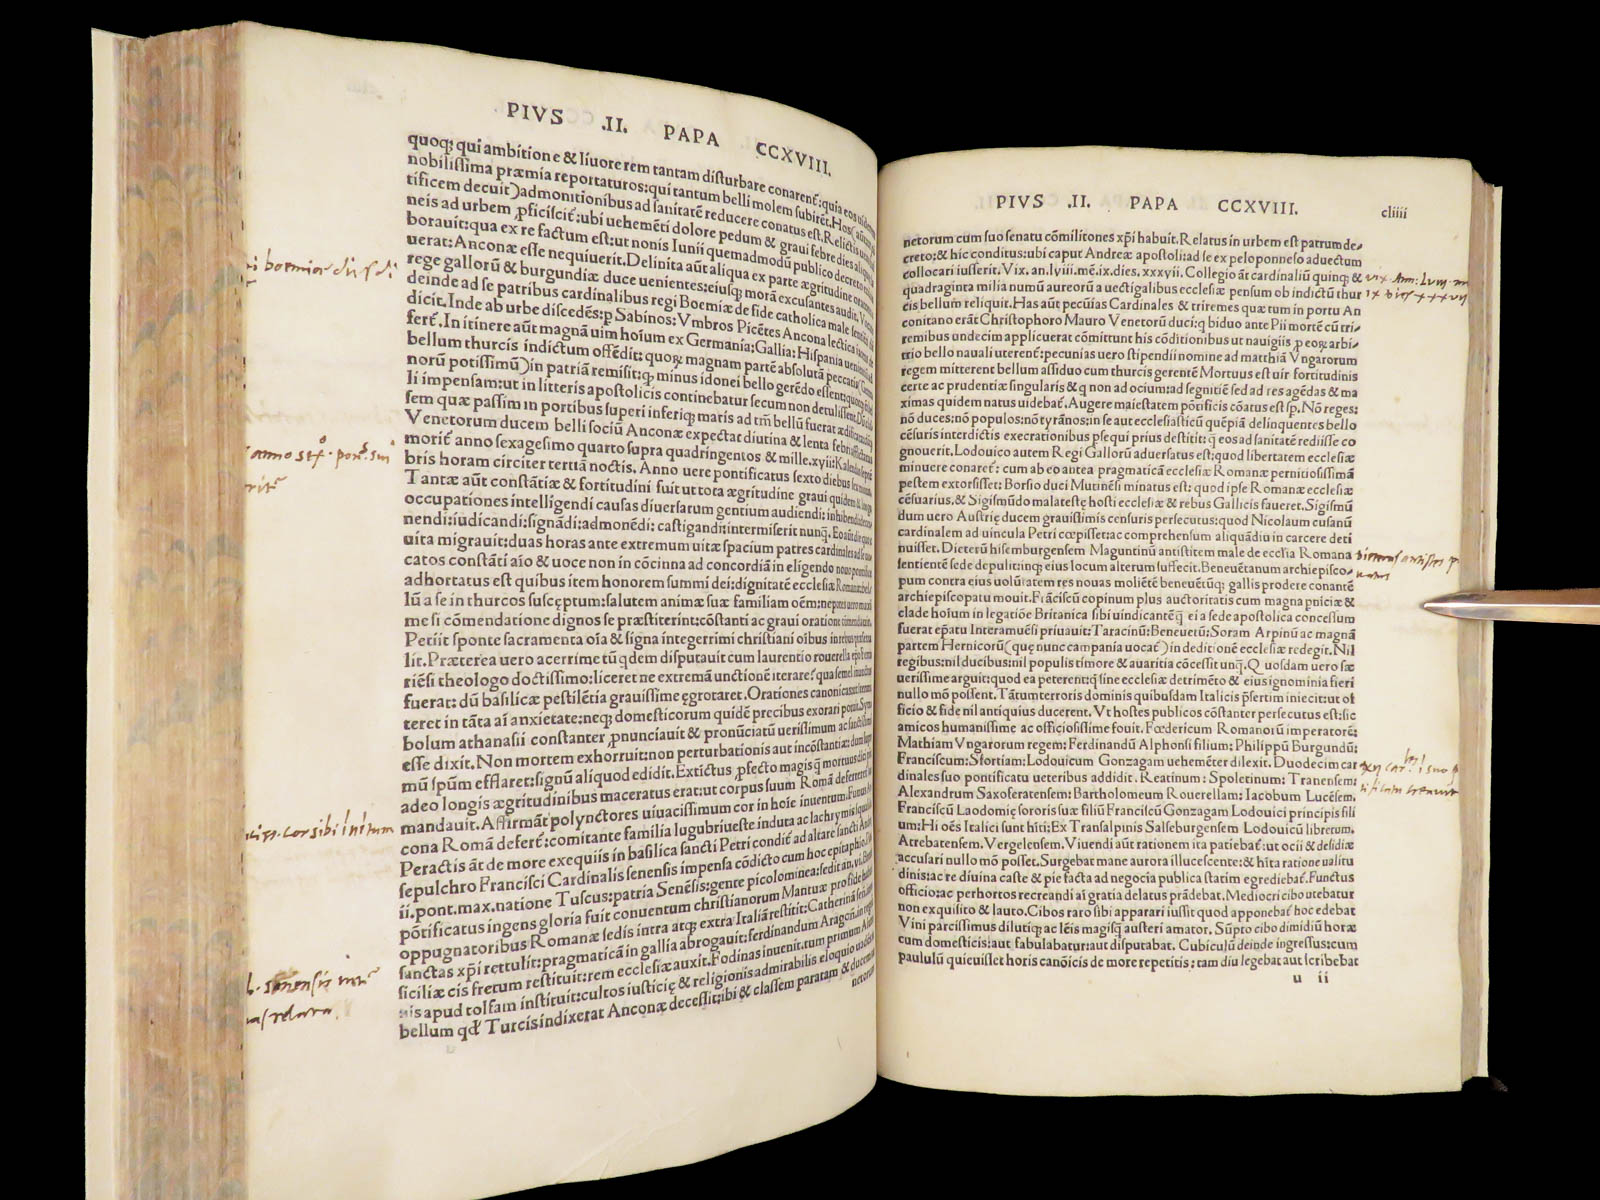 PIVS .II. PAPA CCXVIII.
quoq; qui ambitione & liuore rem tantam disturbare conarent̃: quia eos
nobilissima præmia reportaturos: qui tantum belli molem subirẽt. Hos
tificem decuit) admonitionibus ad sanitatẽ reducere conatus est. Relictis
neis ad urbem ꝓficiscit̃: ubi uehemẽti dolore pedum & graui febre dies aliquot
borauit: qua ex re factum est: ut nonis Iunii quemadmodũ publico decreto
uerat: Anconæ esse nequiuerit. Delinita aũt aliqua ex parte ægritudine oratores
rege gallorũ & burgundiæ duce uenientes: eiusq; morã excusantes audit.
deinde ad se patribus cardinalibus regi Boemiæ de fide catholica male sentiẽti
dicit. Inde ab urbe discedẽs: p Sabinos: Vmbros Picẽtes Ancona lectica
fert̃. In itinere aũt magnã uim hoium ex Germania: Gallia: Hispania
bellum thurcis indictum offẽdit: quoꝝ magnam partẽ absolutã peccatis
norũ potissimũ) in patriã remisit: ꝙ minus idonei bello gerẽdo essent:
li impensam: ut in litteris apostolicis continebatur secum non detulissent. Dũ
sem quæ passim in portibus superi inferiq; maris ad tm̃ bellũ fuerat
Venetorum ducem belli sociũ Anconæ expectat diutina & lenta febri
morit̃ anno sexagesimo quarto supra quadringentos & mille. xviii: Kalendas
bris horam circiter tertiã noctis. Anno uere pontificatus sexto diebus
Tantæ aũt constãtiæ & fortitudini fuit ut tota ægritudine graui quidem & longa
occupationes intelligendi causas diuersarum gentium audiendi: inhibendi
nendi: iudicandi: signãdi: admonẽdi: castigandi: intermiserit nunq̃. Eo aũt die
uita migrauit: duas horas ante extremum uitæ spacium patres cardinales ad se
catos constãti aĩo & uoce non in cõcinna ad concordiã in eligendo nouo pontifice
adhortatus est quibus item honorem summi dei: dignitatẽ ecclesiæ Romanæ:
lũ a se in thurcos susceptum: salutem animæ suæ familiam oẽm: nepotes uero
me si cõmendatione dignos se præstiterint: cõstanti ac graui oratione cõmendauit.
Petiit sponte sacramenta oĩa & signa integerrimi christiani oĩbus in rebus
lit. Præterea uero acerrime tũ qdem disputauit cum laurentio rouerella
riẽsi theologo doctissimo: liceret ne extremã unctionẽ iterare: qua semel inunctus
fuerat: dũ basilicæ pestilẽtia grauissime ęgrotaret. Orationes canonicas
teret in tãta aĩ anxietate: neq; domesticorum quidẽ precibus exorari potuit.
bolum athanasii constanter ꝓnunciauit & pronũciatũ uerissimum ac sanctissimũ
esse dixit. Non mortem exhorruit: non perturbationis aut incõstantiæ: dum
mũ sp̃um efflaret: signũ aliquod edidit. Extictus ꝓfecto magis q̃ mortuus dici
adeo longis ægritudinibus maceratus erat: ut corpus suum Romã deferretur
mandauit. Affirmãt polynctores uiuacissimum cor in hoĩe inuentum. Funus
cona Romã defert̃: comitante familia lugubri ueste induta ac lachrymis
Peractis aũt de more exequiis in basilica sancti Petri condit̃ ad altare sancti
sepulchro Francisci Cardinalis senensis impensa cõdicto cum hoc epitaphio.
ii. pont. max. natione Tuscus: patria Senẽsis: gente picolominea: sedit an. vi.
põtificatus ingens gloria fuit conuentum christianorum Mantuæ pro fide habuit
oppugnatoribus Romanæ sedis intra atq; extra Italiã restitit: Catherinã
sanctas xp̃i rettulit: pragmaticã in gallia abrogauit: ferdinandum Aragoñ. in
siciliæ cis fretum restituit: rem ecclesiæ auxit. Fodinas inuenit. tum primum
nis apud tolfam instituit: cultos iusticię & religionis admirabilis eloquio
bellum qd̃ Turcis indixerat Anconæ decessit: ibi & classem paratam & ducem
netorum
PIVS .II. PAPA CCXVIII. cliiii
netorum cum suo senatu cõmilitones xp̃i habuit. Relatus in urbem est patrum de-
creto: & hic conditus: ubi caput Andreæ apostoli: ad se ex peloponneso aduectum
collocari iusserit. Vix. an. lviii. mẽ. ix. dies. xxxvii. Collegio aũt cardinaliũ quinq; &
quadraginta milia numũ aureorũ a uectigalibus ecclesiæ pensum ob indictũ thur
cis bellum reliquit. Has aũt pecũias Cardinales & triremes quæ tum in portu An
conitano erãt Christophoro Mauro Venetorũ duci: q biduo ante Pii mortẽ cũ tri-
remibus undecim applicuerat cõmittunt his cõditionibus ut nauigiis ꝓ eoꝝ arbi-
trio bello nauali uterent̃: pecunias uero stipendii nomine ad matthiã Vngarorum
regem mitterent bellum assiduo cum thurcis gerentẽ Mortuus est uir fortitudinis
certe ac prudentiæ singularis & q non ad ocium: ad segnitiẽ sed ad res agẽdas & ma
ximas quidem natus uidebat̃. Augere maiestatem põnficis cõatus est sp̃. Nõ reges:
nõ duces: nõ populos: nõ tyrãnos: in se aut ecclesiasticũ quẽpiã delinquentes bello
cẽsuris interdictis execrationibus psequi prius destitit: q̃ eos ad sanitatẽ rediisse co
gnouerit. Lodouico autem Regi Gallorũ aduersatus est: quod libertatem ecclesiæ
minuere conaret̃: cum ab eo antea pragmaticã ecclesiæ Romanæ pernitiosissimã
pestem extorsisset: Borsio duci Mutinẽsi minatus est: quod ipse Romanæ ecclesiæ
cẽsuarius. & Sigismũdo malatestę hosti ecclesiæ & rebus Gallicis faueret. Sigismũ
dum uero Austrię ducem grauissimis censuris persecutus: quod Nicolaum cusanũ
cardinalem ad uincula Petri cœpisset: ac comprehensum aliquãdiu in carcere deti
nuisset. Dieterũ hisemburgensem Maguntinũ antistitem male de eccl̃ia Romana
sentientẽ sede depulit: inq; eius locum alterum suffecit. Beneuẽtanum archiepisco-
pum contra eius uolũtatem res nouas moliẽtẽ beneuẽtũq; gallis prodere conantẽ
archiepiscopatu mouit. Frãciscũ copinum plus auctoritatis cum magna pniciæ &
clade hoĩum in legatiõe Britanica sibi uindicantẽ q̃ ei a sede apostolica concessum
fuerat ep̃atu Interamuẽsi priuauit: Taracinũ: Beneuetũ: Soram Arpinũ ac magnã
partem Hernicorũ (quę nunc campania uocat̃) in deditionẽ ecclesiæ redegit. Nil
regibus: nil ducibus: nil populis timore & auaritia cõcessit unq̃. Quosdam uero sæ
uerissime arguit: quod ea peterent: q̃ sine ecclesiæ detrimẽto & eius ignominia fieri
nullo mõ possent. Tãtum terroris dominis quibusdam Italicis p̃sertim iniecit: ut of
ficio & fide nil antiquius ducerent. Vt hostes publicos cõstanter persecutus est: sic
amicos humanissime ac officiosissime fouit. Fœdericum Romanorũ imperatorẽ:
Mathiam Vngarorum regem: Ferdinandũ Alphonsi filium: Philippũ Burgundũ:
Franciscum: Sfortiam: Lodouicum Gonzagam uehemẽter dilexit. Duodecim car
dinales suo pontificatu ueteribus addidit. Reatinum: Spoletinum: Tranensem:
Alexandrum Saxoferatensem: Bartholomeum Rouerellam: Iacobum Lucẽsem.
Franciscũ Laodomię sororis suæ filiũ Franciscũ Gonzagam Lodouici principis fili
um: Hi oẽs Italici sunt hĩti: Ex Transalpinis Salseburgensem Lodouicũ libretum.
Atrebatensem. Vergelensem. Viuendi aũt rationem ita patiebat̃: ut ocii & desidiæ
accusari nullo mõ posset. Surgebat mane aurora illucescente: & hĩta ratione ualitu
dinis: ac re diuina caste & pie facta ad negocia publica statim egrediebat̃. Functus
officio: ac perhortos recreandi aĩ gratia delatus prãdebat. Mediocri cibo utebatur
non exquisito & lauto. Cibos raro sibi apparari iussit quod apponebat̃ hoc edebat
Vini parcissimus dilutiq; ac lẽis magisq̃ austeri amator. Sũpto cibo dimidiũ horæ
cum domesticis: aut fabulabatur: aut disputabat. Cubiculũ deinde ingressus: cum
paululũ quieuisset horis canõicis de more repetitis: tam diu legebat aut scribebat
u ii